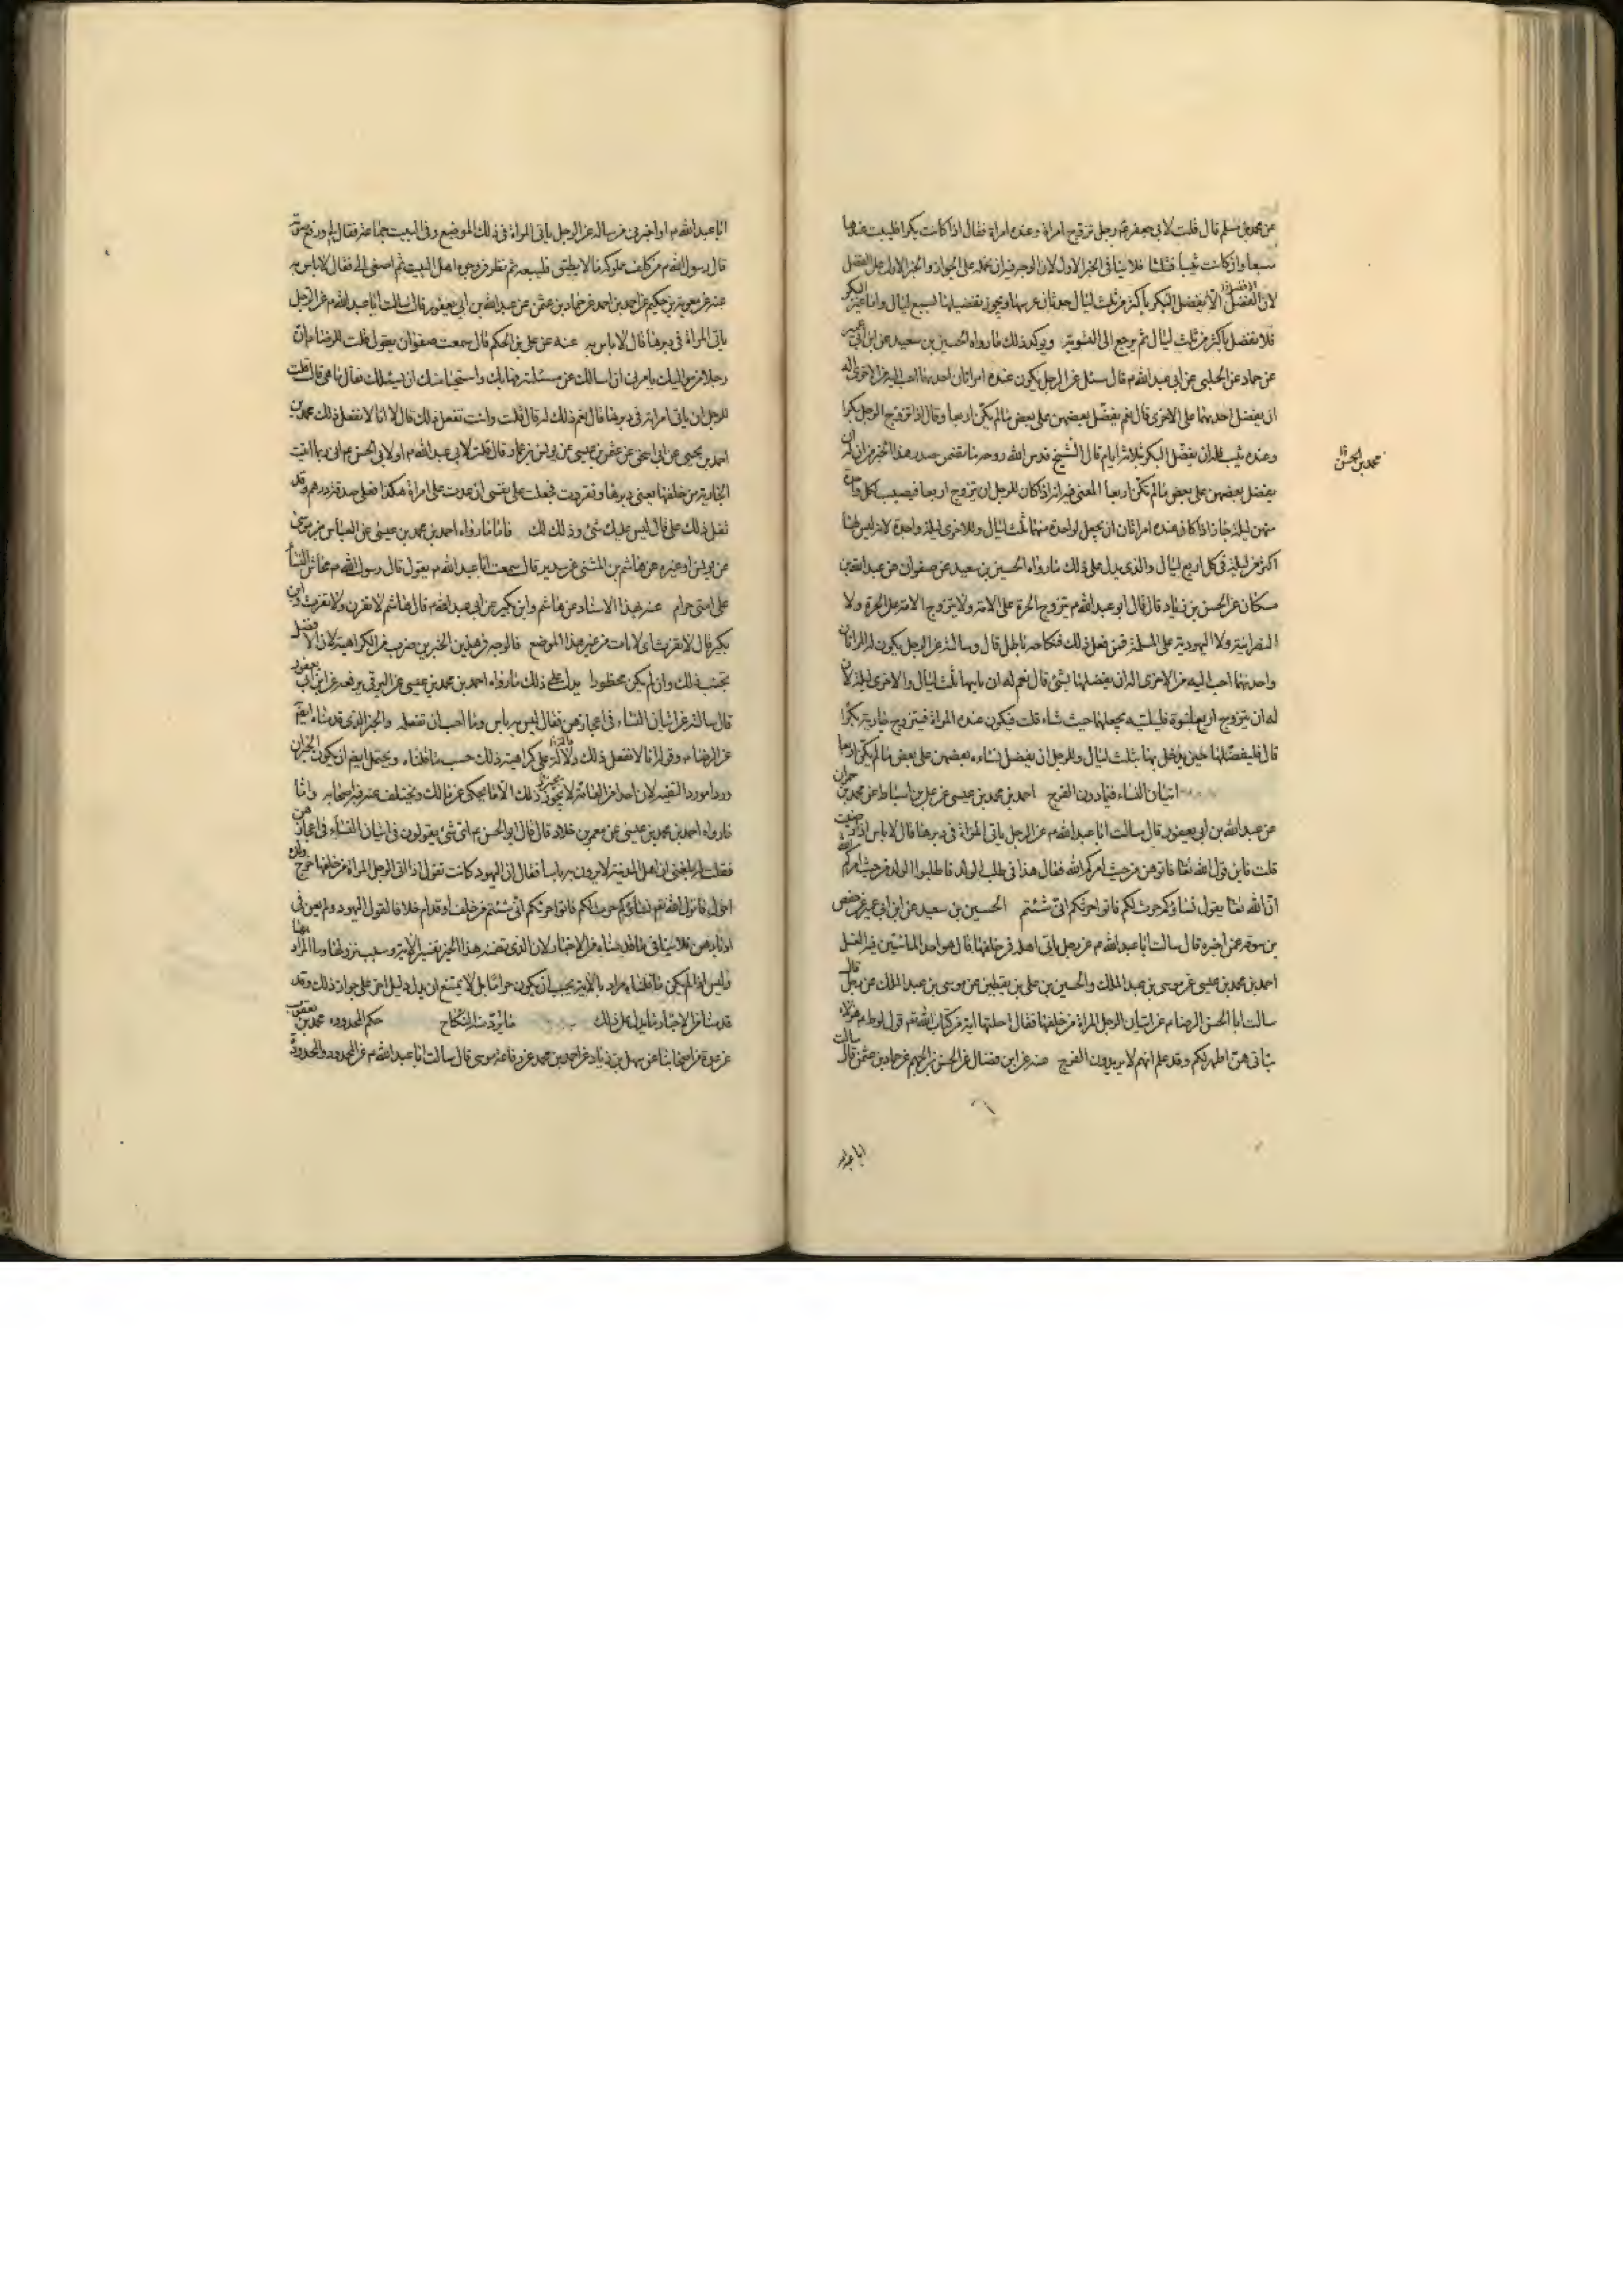 عن محمد بن مسلم قال قلت لابي جعفر ع رجل تزوج امراة وعنده امراة فقال اذا كانت بكرا فليبت عندها
سبعا وان كانت ثيبا فثلثا فلا ينافى الخبر الاول لان الوجه فيه ان نحمله على الجواز والخبر الاول على الفضل
لان الفضل الا يفضل البكر باكثر من ثلث ليال حدثان عرسها ويجوز تفضيلها لسبع ليال واما غير البكر
فلا تفضل باكثر من ثلث ليال ثم يرجع الى التسوية ويؤكد ذلك ما رواه الحسين بن سعيد عن ابن ابى عمير
عن حماد عن الحلبى عن ابى عبد الله م قال سئل عن الرجل يكون عنده امراتان احديهما احب اليه من الاخرى اله
ان يفضل احديهما على الاخرى قال نعم يفضل بعضهن على بعض ما لم يكن اربعا وقال اذا تزوج الرجل بكرا
وعنده ثيب فله ان يفضل البكر بثلاثة ايام قال الشيخ قدس الله روحه ما تضمن صدر هذا الخبر من ان له ان
يفضل بعضهن على بعض ما لم تكن اربعا المعنى فيه انه اذا كان للرجل ان يتزوج اربعا فيصيب كل واحدة
منهن ليلة جاز اذا كان عنده امراتان ان يجعل لواحدة منهما ثلث ليال وللاخرى ليلة واحدة لانه ليس لها
اكثر من ليلة فى كل اربع ليال والذى يدل على ذلك ما رواه الحسين بن سعيد عن صفوان عن عبد الله بن
مسكان عن الحسن بن زياد قال قال ابو عبد الله م يتزوج الحرة على الامة ولا يتزوج الامة على الحرة ولا
النصرانية ولا اليهودية على المسلمة فمن فعل ذلك فنكاحه باطل قال وسالته عن الرجل يكون له المراتان
واحديهما احب اليه من الاخرى اله ان يفضلها بشئ قال نعم له ان ياتيها ثلث ليال والاخرى ليلة لان
له ان يتزوج اربع نسوة فليلتيه يجعلهما حيث شاء قلت فيكون عنده المراة فيتزوج جارية بكرا
قال فليفضلها حين يدخل بها بثلث ليال وللرجل ان يفضل نساءه بعضهن على بعض ما لم يكن اربعا
اتيان النساء فيما دون الفرج احمد بن محمد بن عيسى عن على بن اسباط عن محمد بن حمران
عن عبد الله بن ابى يعفور قال سالت ابا عبد الله م عن الرجل ياتى المراة فى دبرها قال لا باس اذا رضيت
قلت فاين قول الله تعا فاتوهن من حيث امركم الله فقال هذا فى طلب الولد فاطلبوا الولد من حيث امركم الله
ان الله تعا يقول نساؤكم حرث لكم فاتوا حرثكم انى شئتم الحسين بن سعيد عن ابن ابى عمير عن حفص
بن سوقة عمن اخبره قال سالت ابا عبد الله م عن رجل ياتى اهله من خلفها قال هو احد الماتيين فيه الغسل
احمد بن محمد بن عيسى عن موسى بن عبد الملك والحسين بن على بن يقطين عن موسى بن عبد الملك عن رجل قال
سالت ابا الحسن الرضا م عن اتيان الرجل المراة من خلفها فقال احلتها اية من كتاب الله تع قول لوط م هؤلاء
بناتى هن اطهر لكم وقد علم انهم لا يريدون الفرج عنه عن ابن فضال عن الحسن بن الجهم عن حماد بن عثمن قال سالت
ابا عبد الله
محمد بن الحسن
ابا عبد الله م او اخبرنى من ساله عن الرجل ياتى المراة فى ذلك الموضع وفى البيت جماعة فقال لى ورفع صوته
قال رسول الله م من كلف مملوكه ما لا يطيق فليبعه ثم نظر فى وجوه اهل البيت ثم اصغى الى فقال لا باس به
عنه عن معوية بن حكيم عن احمد بن احمد عن حماد بن عثمن عن عبد الله بن ابى يعفور قال سالت ابا عبد الله م عن الرجل
ياتى المراة فى دبرها قال لا باس به عنه عن على بن الحكم قال سمعت صفوان يقول قلت للرضا م ان
رجلا من مواليك يامرنى ان اسالك عن مسئلة هابك واستحيا منك ان يسئلك فقال ما هى قال قلت
للرجل ان ياتى امراته فى دبرها قال نعم ذلك له قال قلت وانت تفعل ذلك قال لا انا لا نفعل ذلك محمد بن
احمد بن يحيى عن ابى اسحق عن عثمن بن عيسى عن يونس بن عمار قال قلت لابى عبد الله م او لابى الحسن م انى ربما اتيت
الجارية من خلفها يعنى دبرها وتقززت فجعلت على نفسى ان عدت على امراة هكذا فعلى صدقة درهم وقد
ثقل ذلك على قال ليس عليك شئ وذلك لك فاما ما رواه احمد بن محمد بن عيسى عن العباس بن موسى
عن يونس او غيره عن هاشم بن المثنى عن سدير قال سمعت ابا عبد الله م يقول قال رسول الله م محاش النساء
على امتى حرام عنه بهذا الاسناد عن هاشم وابن بكير عن ابى عبد الله م قال هاشم لا تفرث وابن
بكير قال لا تفرث اى لا يات من غير هذا الموضع فالوجه فى هذين الخبرين ضرب من الكراهية لان الافضل
تجنب ذلك وان لم يكن محظورا يدل على ذلك ما رواه احمد بن محمد بن عيسى عن البرقى يرفعه عن ابن ابى يعفور
قال سالته عن اتيان النساء فى اعجازهن فقال ليس به باس وما احب ان تفعله والخبر الذى قدمناه ايضا
عن الرضا م وقوله انا لا نفعل ذلك دلالة على كراهية ذلك حسب ما قلناه ويحتمل ايضا ان يكون الخبران
وردا مورد التقية لان احدا من العامة لا يجيز ذلك الا ما يحكى عن مالك ويختلف عنه فيه اصحابه واما
ما رواه احمد بن محمد بن عيسى عن معمر بن خلاد قال قال ابو الحسن م اى شئ يقولون فى اتيان النساء فى اعجازهن
فقلت له بلغنى ان اهل المدينة لا يرون به باسا فقال ان اليهود كانت تقول اذا اتى الرجل المراة من خلفها خرج ولده
احول فانزل الله تع نساؤكم حرث لكم فاتوا حرثكم انى شئتم من خلف او قدام خلافا لقول اليهود ولم يعن فى
ادبارهن فلا ينافى ما قدمناه من الاخبار لان الذى تضمنه هذا الخبر تفسير الاية وسبب نزولها وما المراد بها
وليس اذا لم يكن ما قلناه مراد بالاية يجب ان يكون حراما بل لا يمتنع ان يدل دليل اخر على جواز ذلك وقد
قدمنا من الاخبار ما يدل على ذلك ما يرد منه النكاح حكم المحدودة محمد بن يعقوب
عن عدة من اصحابنا عن سهل بن زياد عن احمد بن محمد عن رفاعة بن موسى قال سالت ابا عبد الله م عن المحدود والمحدودة